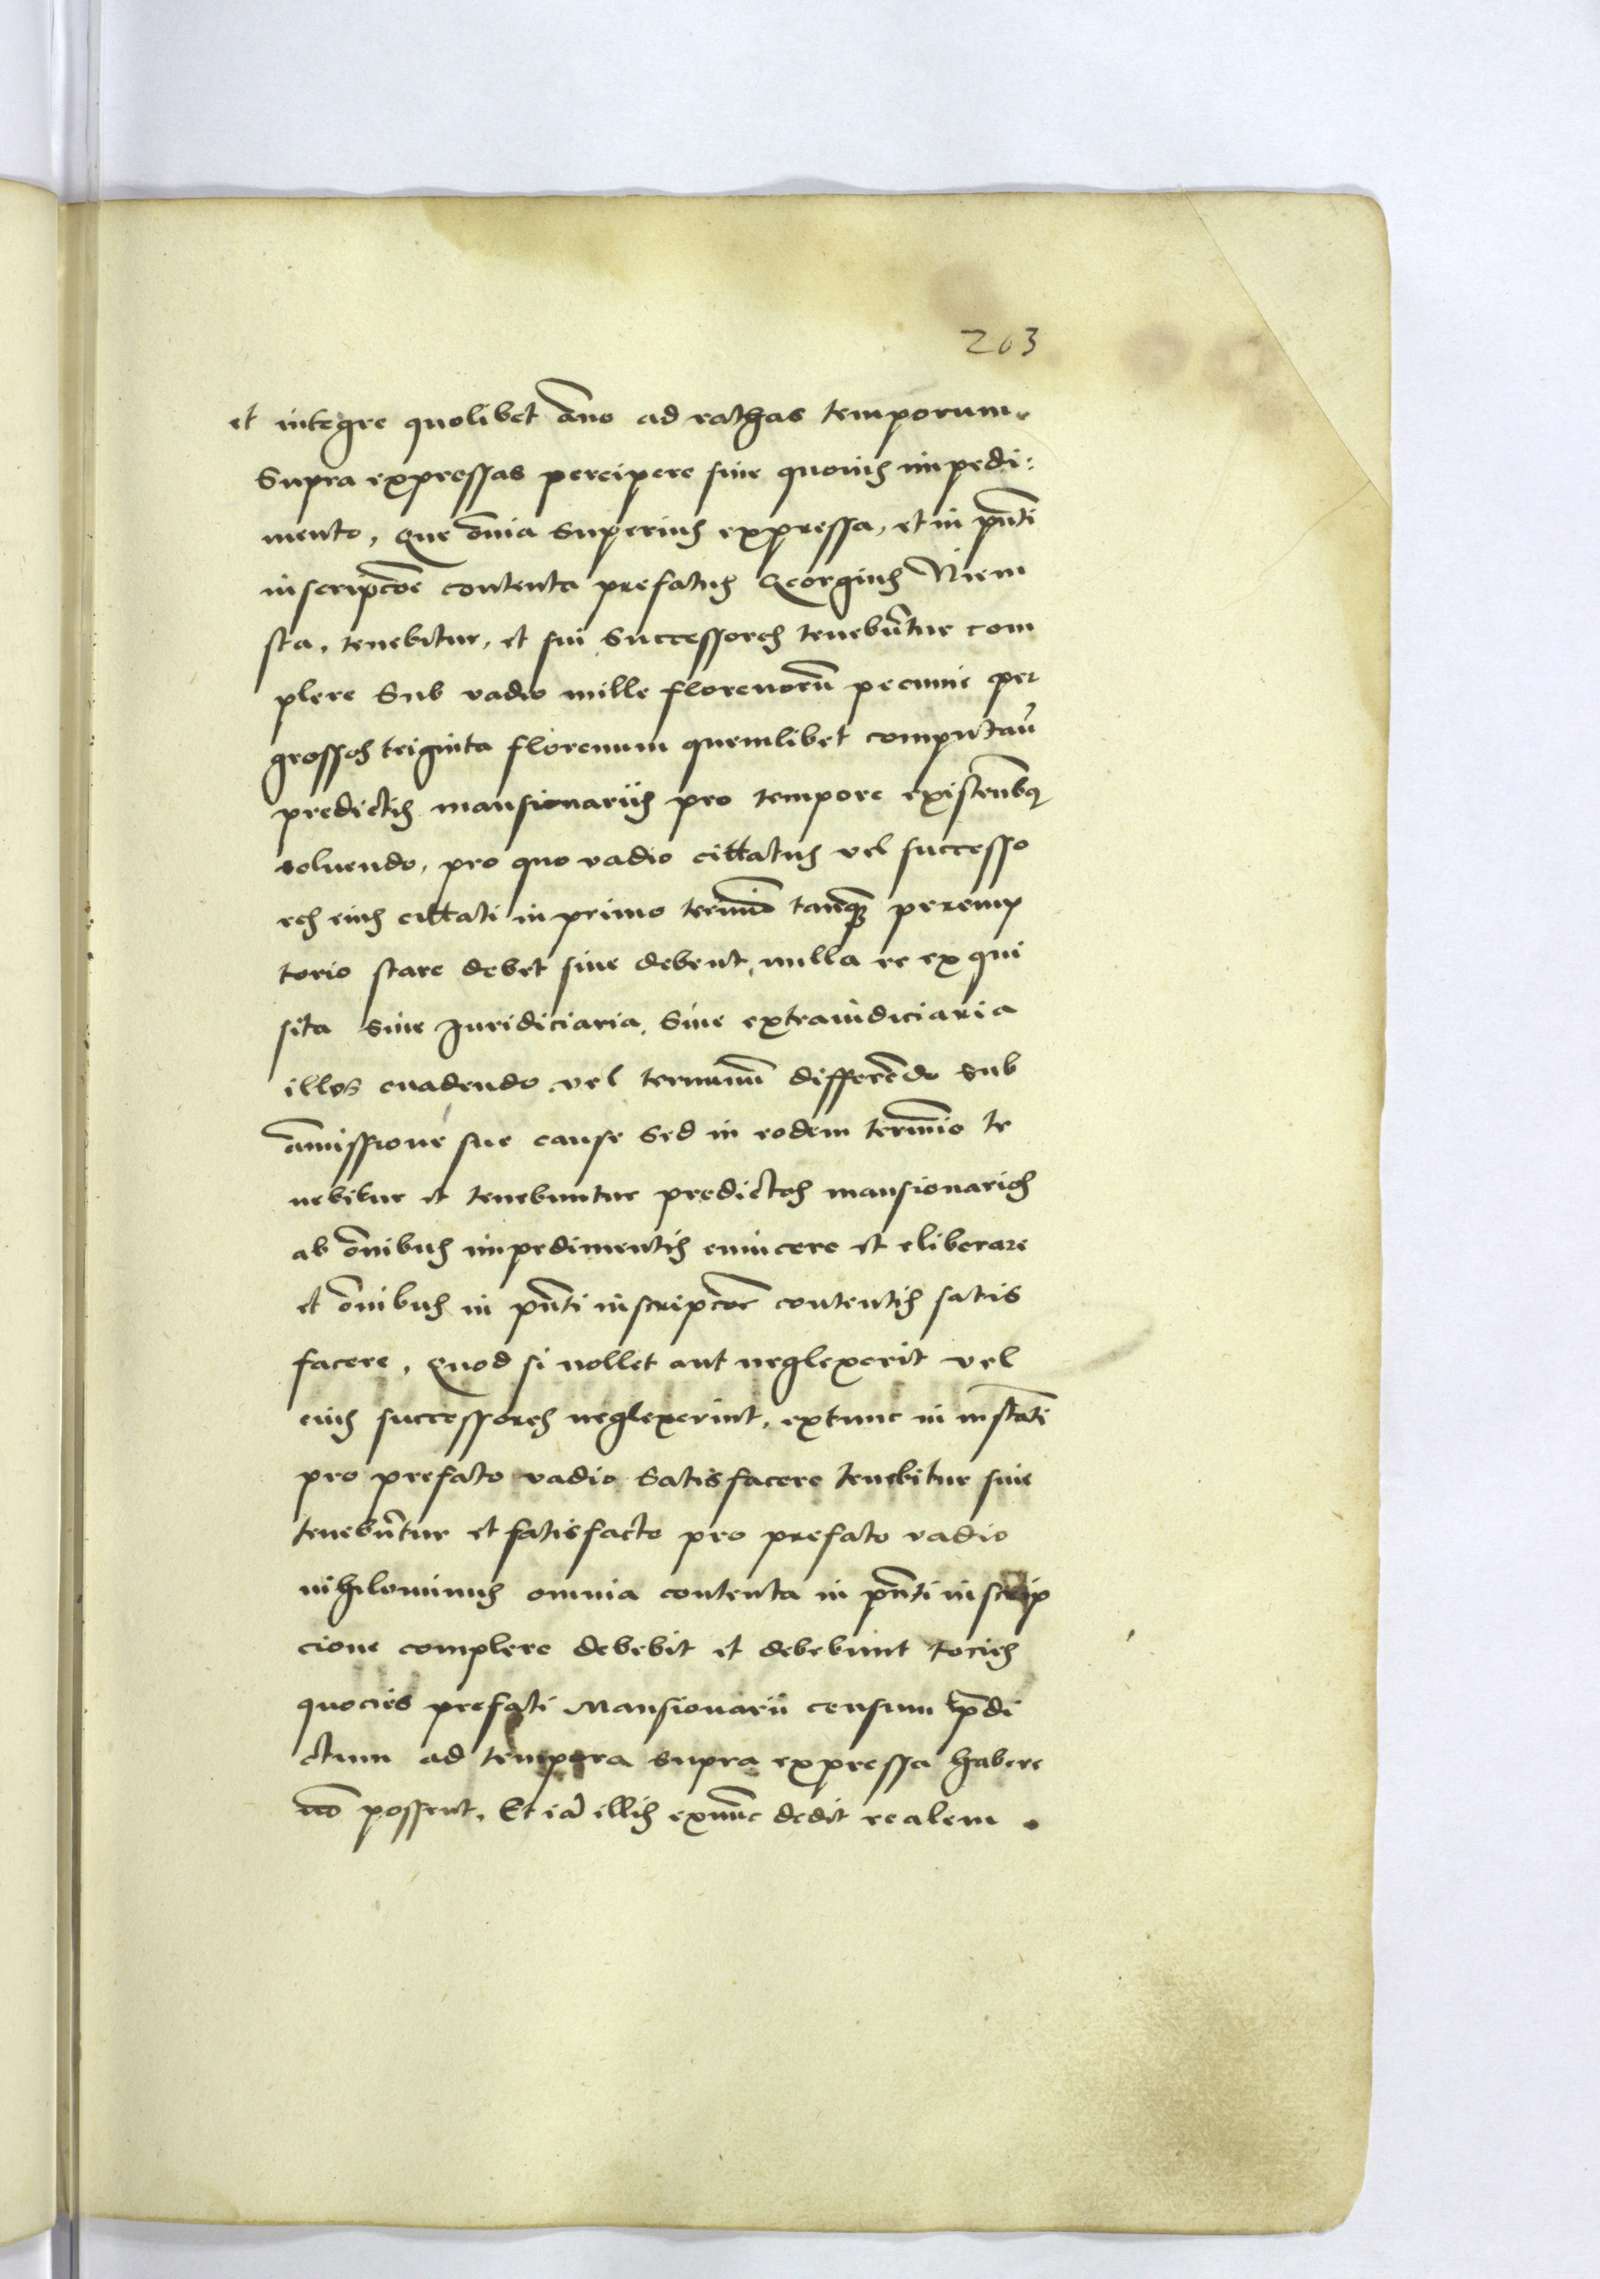 203
et integre quolibet āno ad rathas temporum
Supra expressas percipere sine quouis impedi:
mento, Que ōnia Superius expressa, et in pn̄ti
inscripcōe contenta prefatus Georgius Niem
sta, tenebitur, et sui Successores tenebūtur com
plere Sub vadio mille florenorū pecunie per
grossos triginta florenum quemlibet computan̄
predictis mansionariis pro tempore existentibꝫ
soluendo, pro quo vadio cittatus vel successo
res eius cittati in primo termīo tanqꝫ peremp
torio stare debet siue debent, nulla re exqui
sita Siue Juridiciaria, Siue extraiudiciaria
illos euadendo vel terminū differēdo sub
āmissione sue cause Sed in eodem termīo te
nebitur et tenebuntur predictos mansionarios
ab ōnibus impedimentis euincere et eliberare
et ōnibus in pn̄ti inscripcōe contentis satis
facere, Quod si nollet aut neglexerit vel
eius successores neglexerint, extunc in instāti
pro prefato vadio Satisfacere tenebitur siue
tenebūtur et satisfacto pro prefato vadio
nihilominus omnia contenta in pn̄ti inscrip
cione complere debebit et debebunt tocies
quocies prefati Mansionarii censum p̄di
ctum ad tempora supra expressa habere
nō possent, Et iā illis exnūc dedit realem